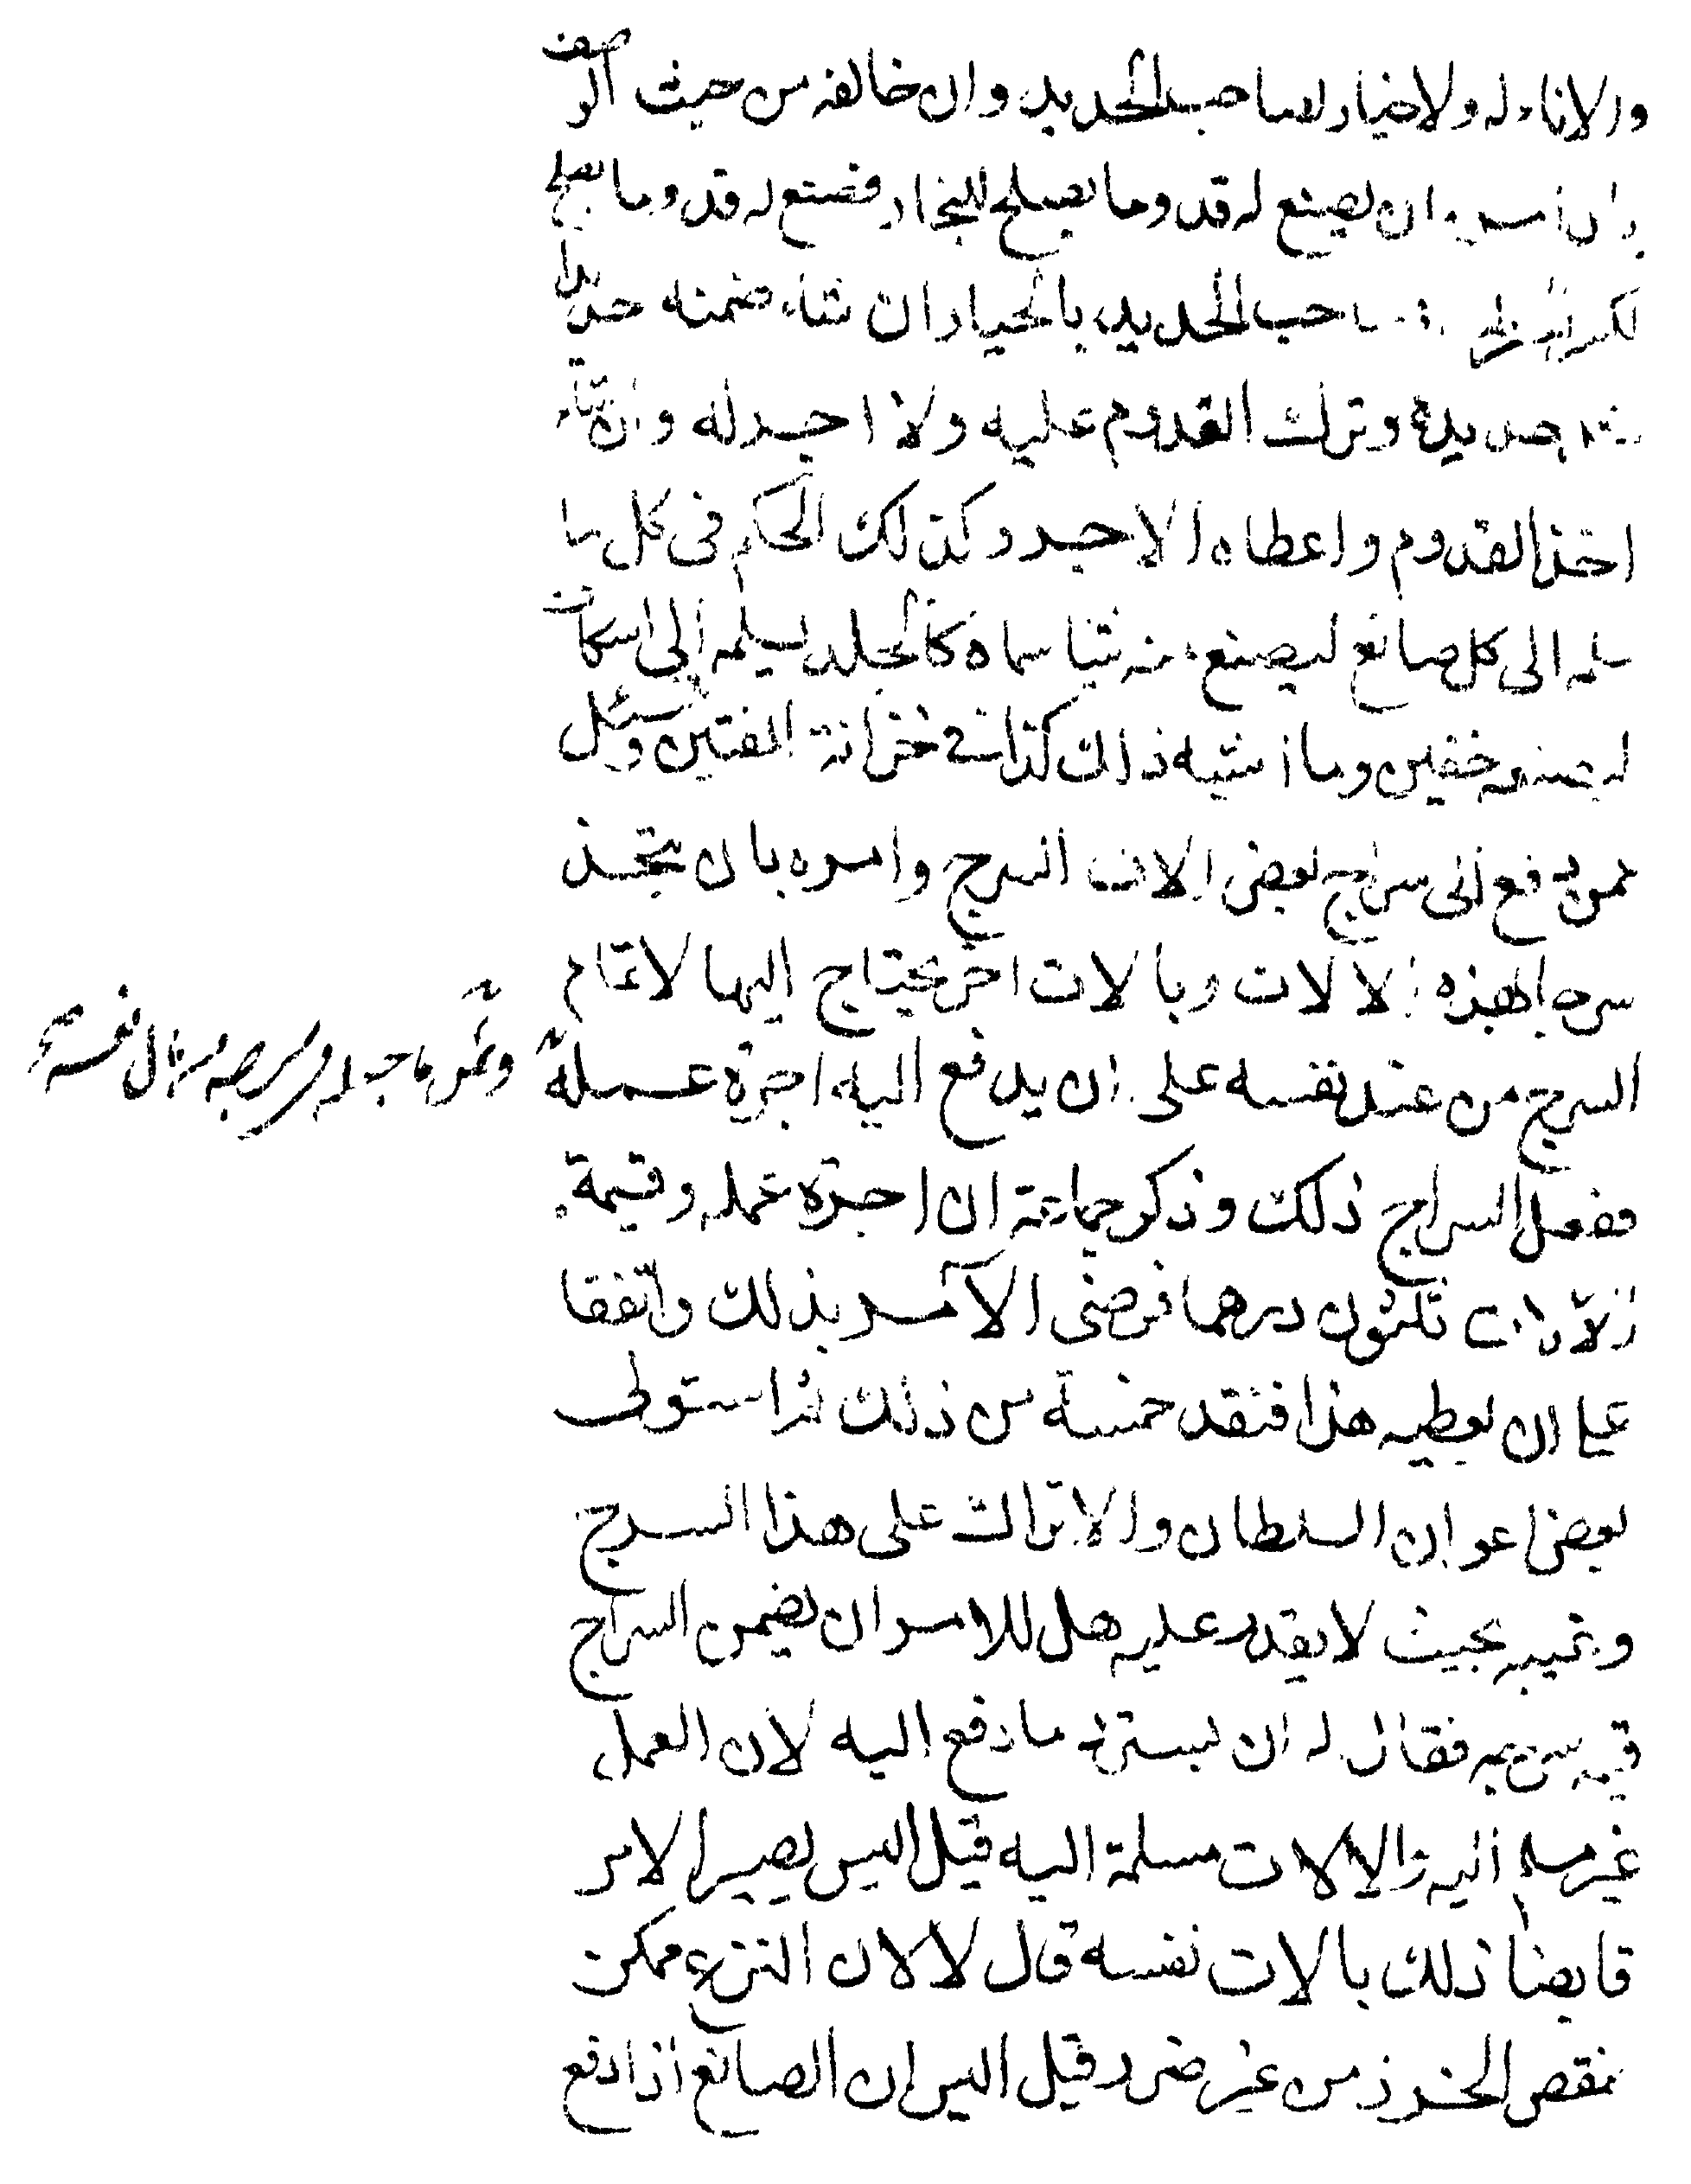 والاناء له ولا خيار لصاحب الحديد وان خالفه من حيث الوصف
بان امره ان يصنع له قدوما يصلح للنجار فصنع له قدوما يصلح
لكسر الحطب فصاحب الحديد بالخيار ان شاء ضمنه حديدا
مثل حديده وترك القدوم عليه ولا اجر له وان شاء
اخذ القدوم واعطاه الاجر وكذلك الحكم في كل ما
سلمه الى كل صانع ليصنع منه شيئا سماه كالجلد يسلمه الى اسكاف
ليصنعه خفين وما اشبه ذلك كذا في خزانة المفتين وسئل
عمن دفع الى سراج بعض الات السرج وامره بان يتخذ
سرجا بهذه الالات وبالات اخر يحتاج اليها لاتمام
السرج من عند نفسه على ان يدفع اليه اجرة عمله
وثمن ما جعله في سرجه من مال نفسه
ففعل السراج ذلك وذكر جماعة ان اجرة عمله وقيمة
الالات تكون درهما فرضي الآمر بذلك واتفقا
على ان يعطيه هذا فنقد خمسة من ذلك ثم استولى
بعض اعوان السلطان والاتراك على هذا السرج
وغيبه بحيث لا يقدر عليه هل للامر ان يضمن السراج
قيمة سرجه فقال له ان يسترد ما دفع اليه لان العمل
غير مسلم اليه والالات مسلمة اليه قيل اليس يصير الامر
قابضا ذلك بالات نفسه قال لا لان النزع ممكن
بنقص الخرز من غير ضرر قيل اليس ان الصانع اذا دفع